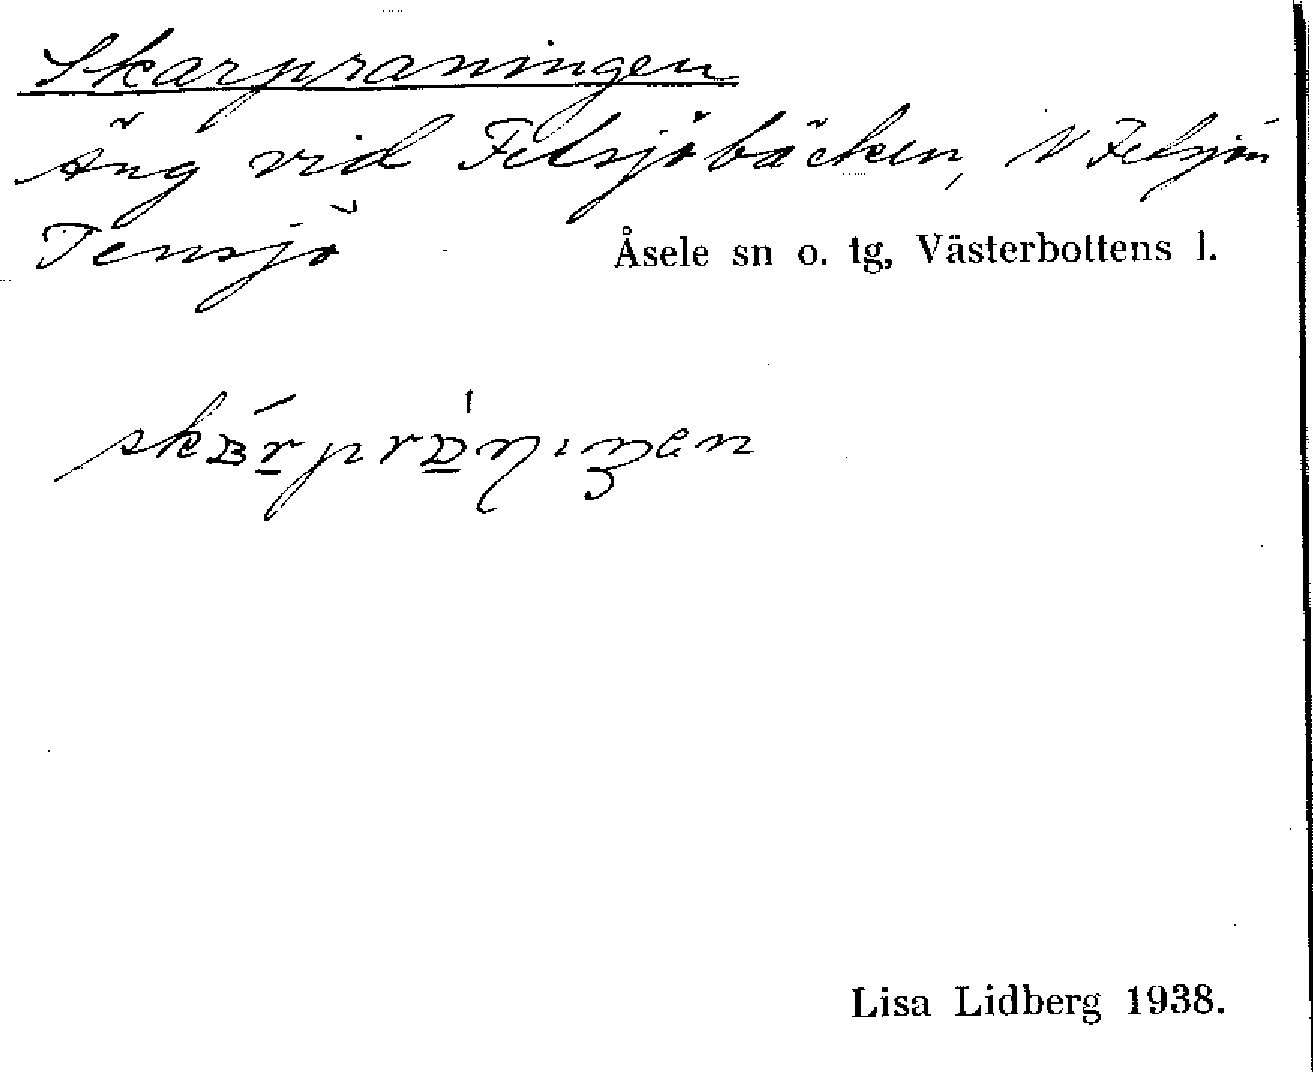 Skarpraningen
Äng vid Fetsjöbäcken, N Fetsjön
Tensjö Åsele sn o. tg, Västerbottens l.
Lisa Lidberg 1938.